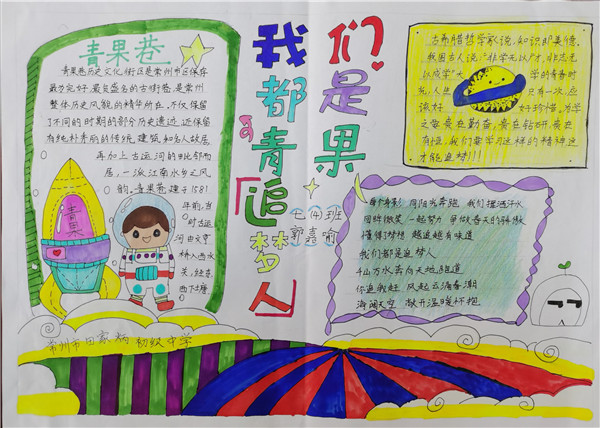 青果巷
青果巷历史文化街区是常州市区保存
最为完好、最负盛名的古街巷,是常州
整体历史风貌的精华所在,不仅保留
了不同的时期的部分历史遗迹,还保留
有纯朴秀丽的传统建筑,如名人故居
再加上古运河的毗邻而
居,一派江南水乡之风
韵。青果巷建于1581
年前,当
时古运
河由文亨
桥入西水
关,经东
西下塘
青果
我们都是
青果
「追梦人」
七(4)班
郭嘉喻
古希腊哲学家说,知识即美德。
我国古人说:“非学无以广才,非志无
以成学”大
学的青春时
光,人生
只有一次,应
该好
好珍惜,为学
之要贵在勤奋,贵在钻研,贵在
有恒,我们要学习这样的精神这
才能追梦!!!
每个身影 同阳光奔跑 我们挥洒汗水
回眸微笑 一起努力 争做春天的骄傲
懂得梦想 越追越有味道
我们都是追梦人
千山万水奔向天地跑道
你追我赶 风起云涌春潮
海阔天空 敞开温暖怀抱
常州市田家炳初级中学